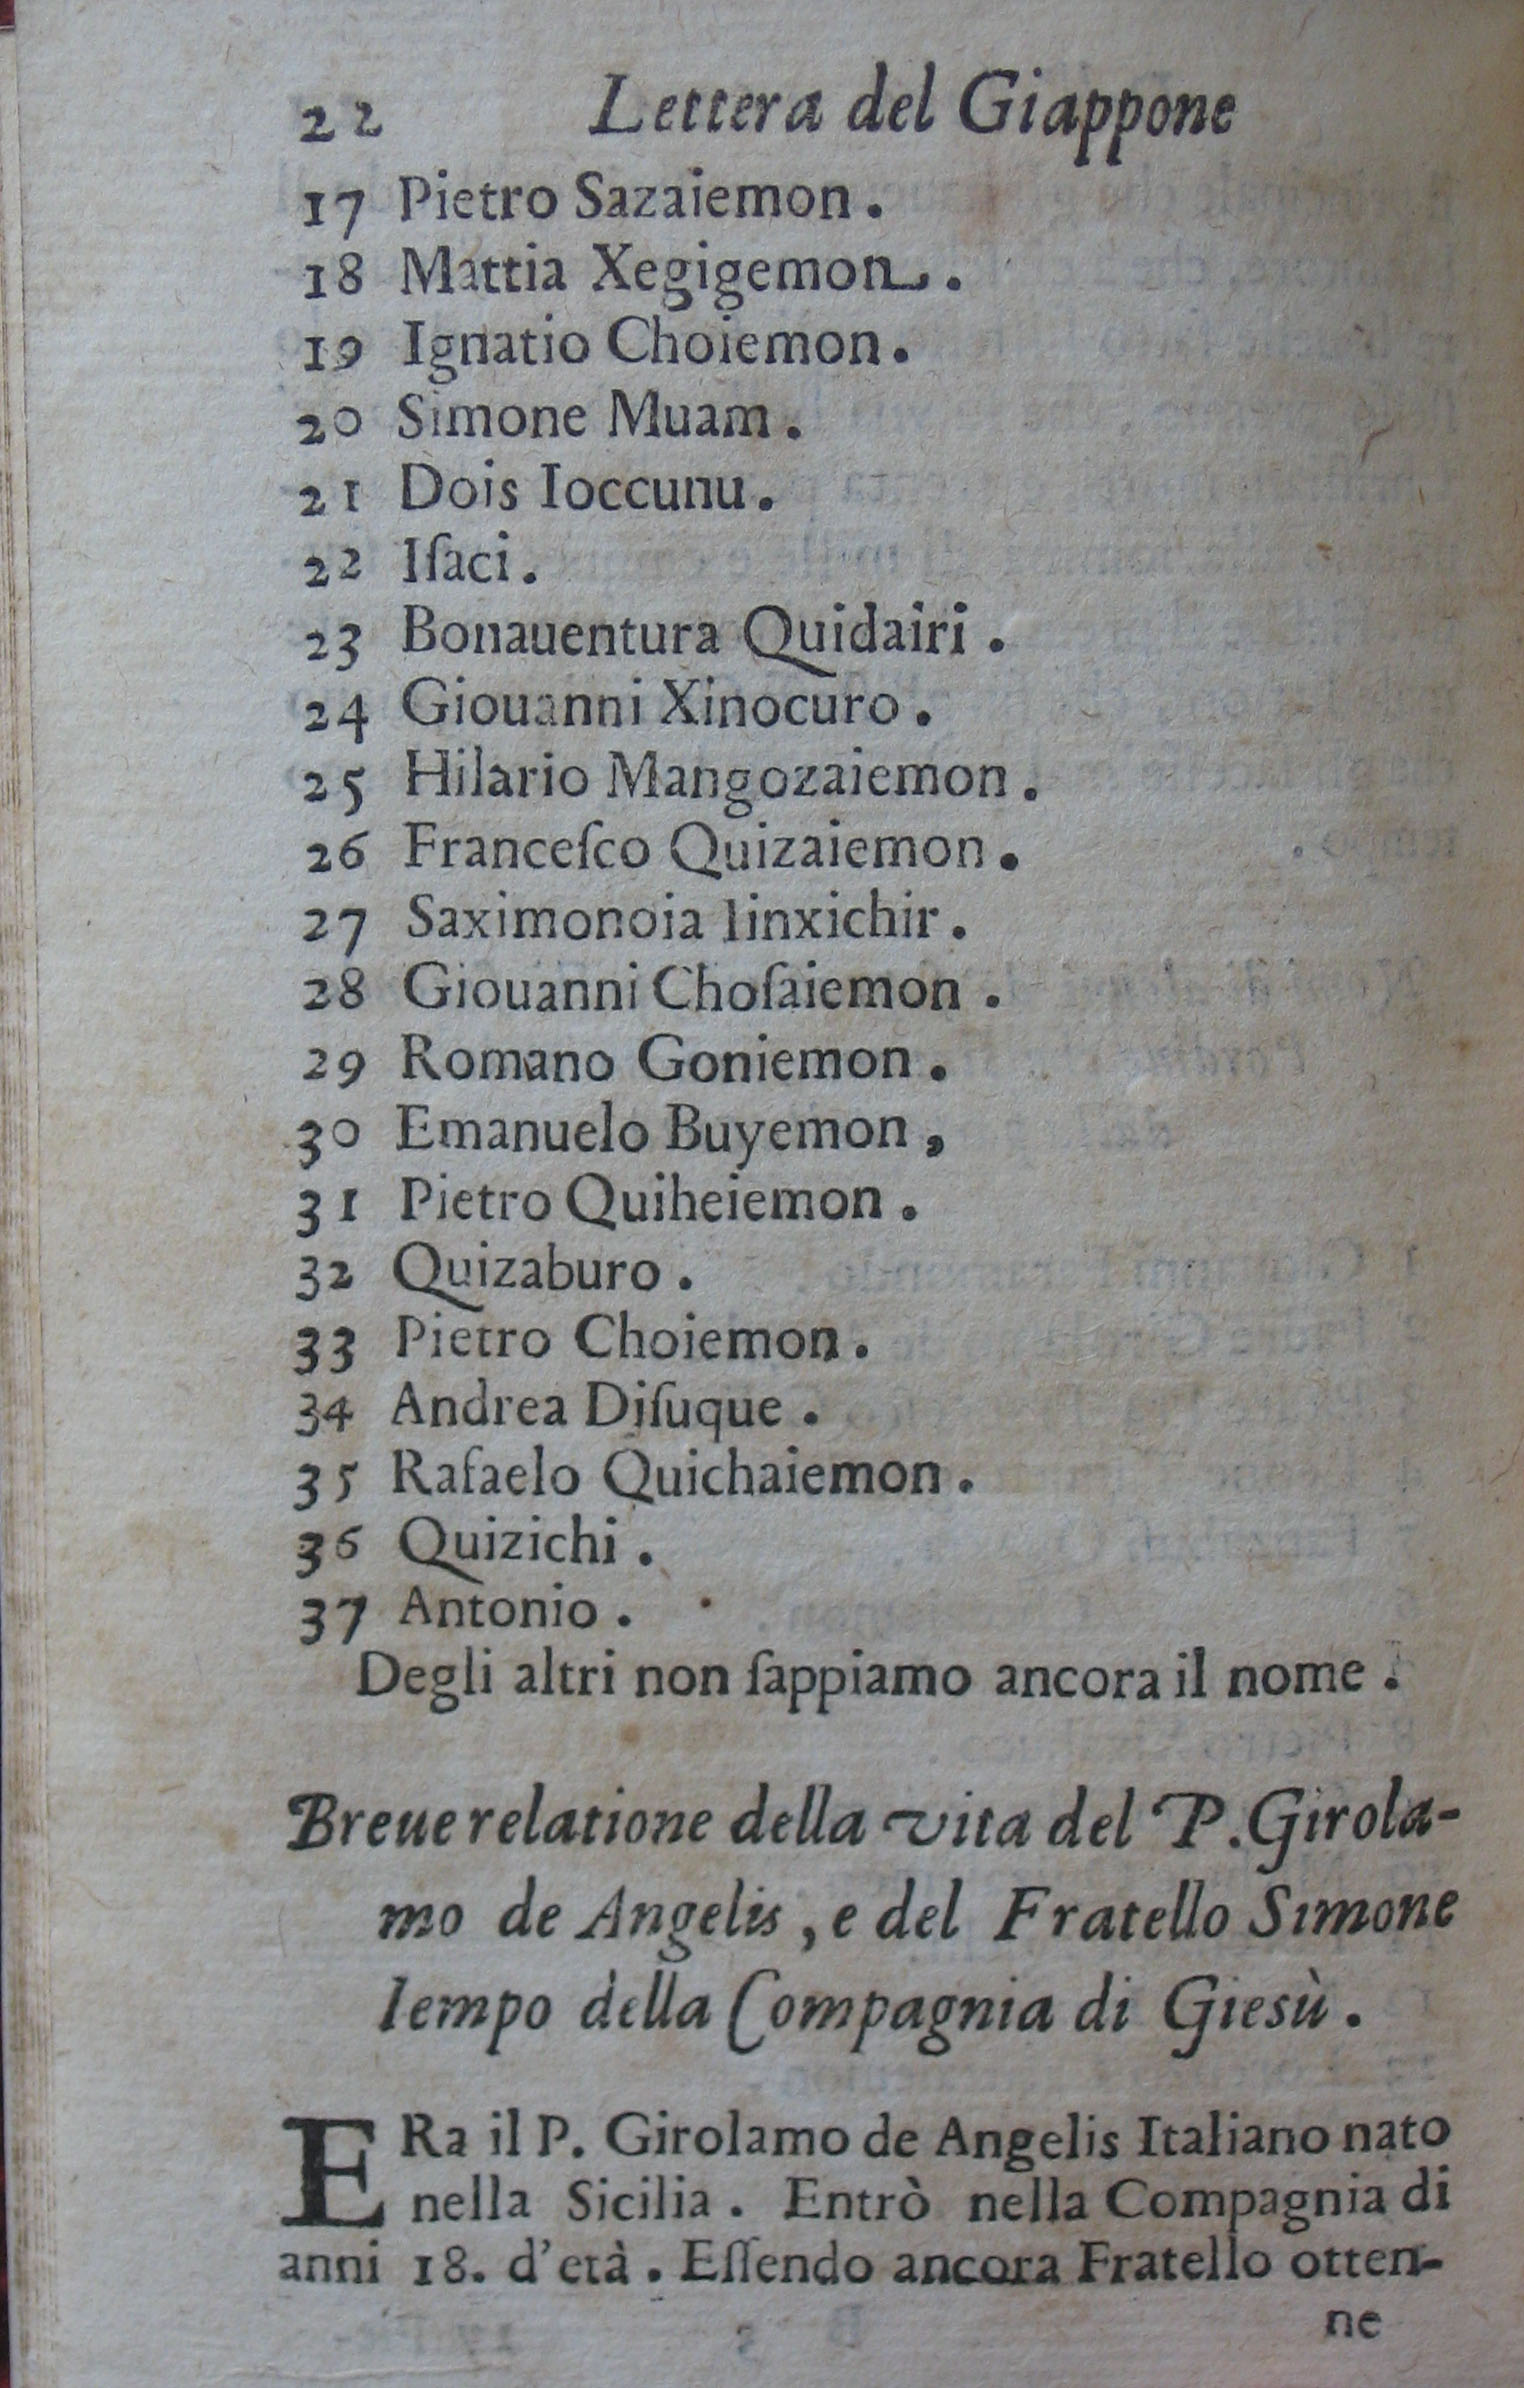 22 Lettera del Giappone
17 Pietro Sazaiemon.
18 Mattia Xegigemon.
19 Ignatio Choiemon.
20 Simone Muam.
21 Dois Ioccunu.
22 Iſaci.
23 Bonauentura Quidairi.
24 Giouanni Xinocuro.
25 Hilario Mangozaiemon.
26 Franceſco Quizaiemon.
27 Saximonoia Iinxichir.
28 Giouanni Choſaiemon.
29 Romano Goniemon.
30 Emanuelo Buyemon,
31 Pietro Quiheiemon.
32 Quizaburo.
33 Pietro Choiemon.
34 Andrea Diſuque.
35 Rafaelo Quichaiemon.
36 Quizichi.
37 Antonio.
Degli altri non ſappiamo ancora il nome.
Breue relatione della vita del P. Girola-
mo de Angelis, e del Fratello Simone
Iempo della Compagnia di Giesù.
ERa il P. Girolamo de Angelis Italiano nato
nella Sicilia. Entrò nella Compagnia di
anni 18. d'età. Eſſendo ancora Fratello otten-
ne